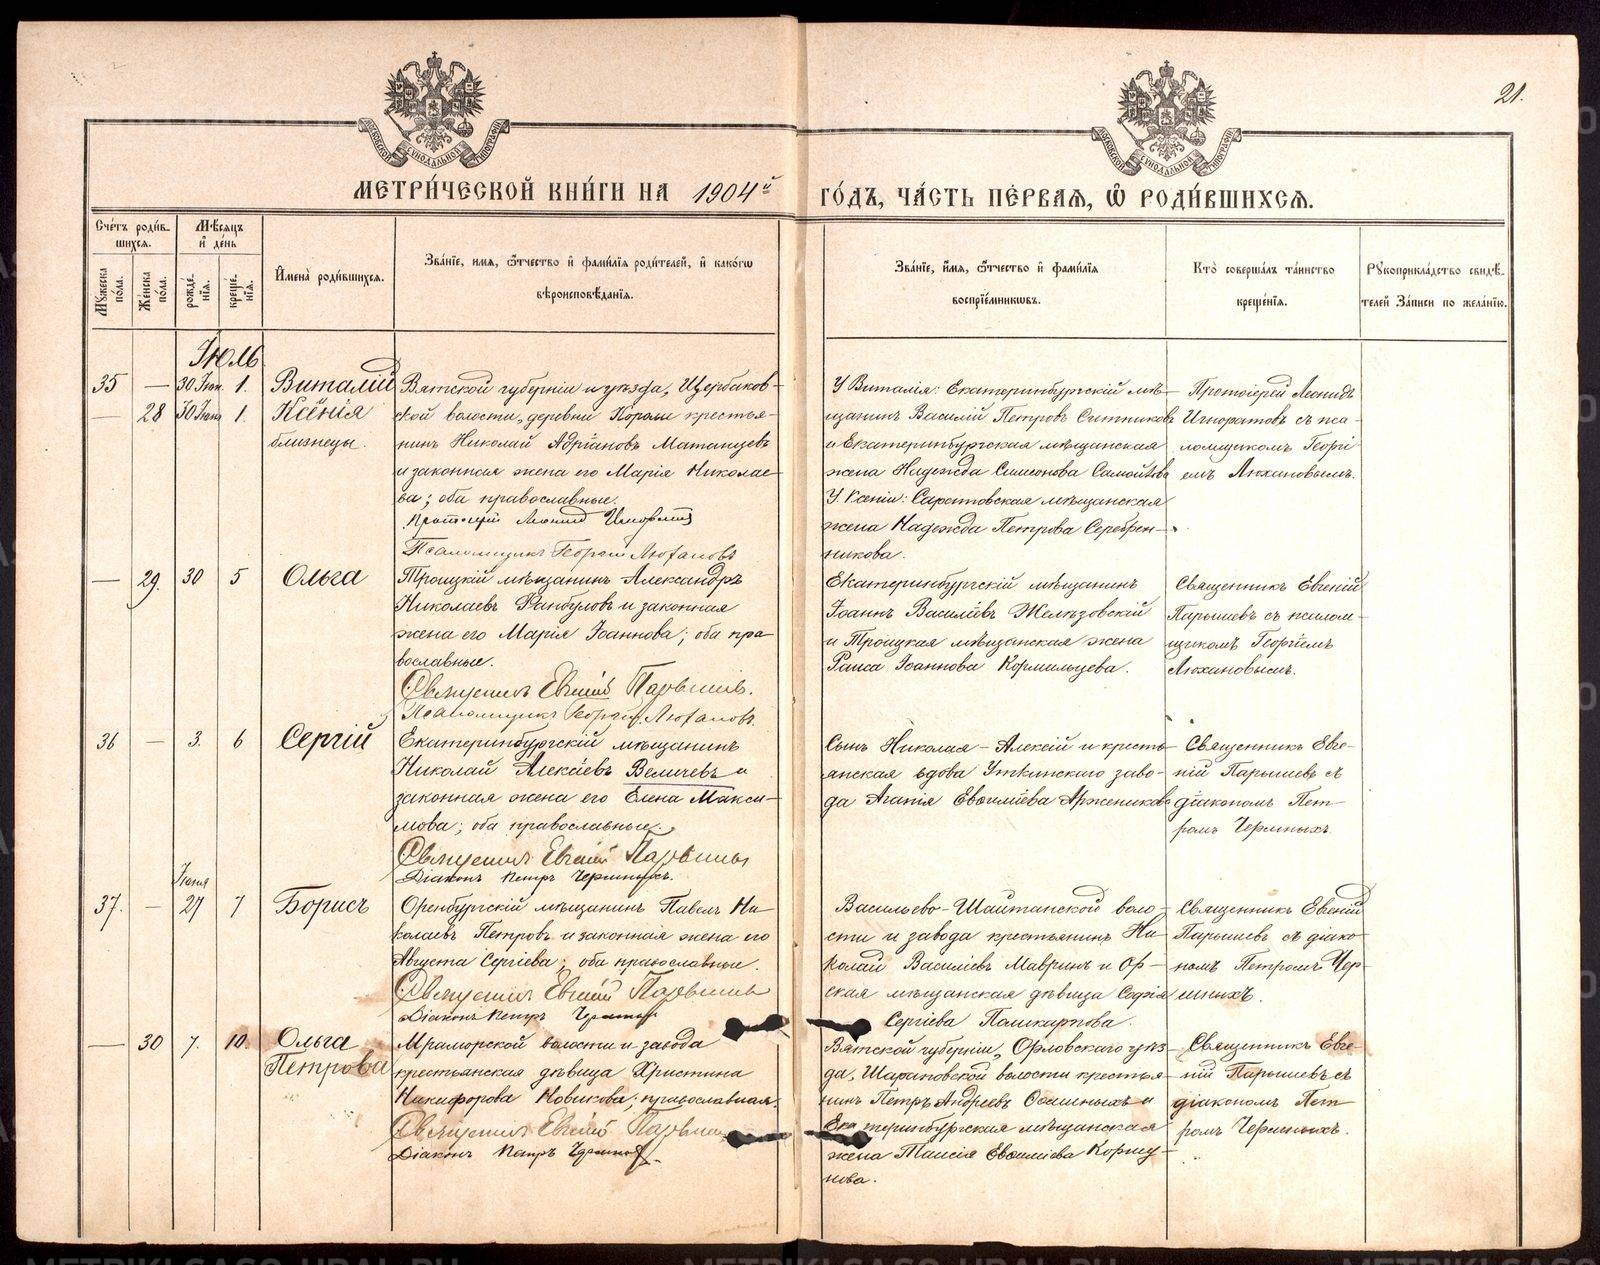 21.
МОСКОВСКОЙ СѴНОДАЛЬНОЙ ТИПОГРАФІИ
МОСКОВСКОЙ СѴНОДАЛЬНОЙ ТИПОГРАФІИ
МЕТРИ́ЧЕСКОЙ КНИ́ГИ НА 1904й ГО́ДЪ, ЧА́СТЬ ПЕ́РВАЯ, Ѡ҆ РОДИ́ВШИХСЯ.
Сче́тъ роди́в-
шихся.
Мѣ́сяцъ
и҆ де́нь
Му́жеска по́ла.
Же́нска по́ла.
рожде́-
нія.
креще́-
нія.
И҆мена̀ роди́вшихся.
Зва́ніе, имя, ѻ҆́тчество и҆ фами́лія роди́телей, и҆ како́гѡ
вѣроисповѣ́данія.
Зва́ніе, и҆́мя, ѻ҆́тчество и҆ фами́лія
воспріе́мникѡвъ.
Кто̀ соверша́лъ та́инство
креще́нія.
Рꙋкоприкла́дство свидѣ́-
телей За́писи по жела́нію.
Іюль
35 — 30 Іюн. 1. Виталій
— 28 30 Іюня 1. Ксенія
близнецы.
Вятской губерніи и уѣзда, Щербаков-
ской волости, деревни крестья-
нинъ Николай Адріановъ Матанцевъ
и законная жена его Марія Николае-
ва; оба православные.
Протоіерей Леонид Игноратов
Псаломщикъ Георгій Люхановъ
У Виталія: Екатеринбургскій мѣ-
щанинъ Василій Петровъ Ситников
и Екатеринбургская мѣщанская
жена Надежда Симеонова Самойлова
У Ксеніи: Саратовская мѣщанская
жена Надежда Петрова Серебрен-
никова.
Протоіерей Леонидъ
Игноратовъ съ пса-
ломщикомъ Георгі-
емъ Люхановымъ.
— 29. 30 5 Ольга
Троицкій мѣщанинъ Александръ
Николаевъ и законная
жена его Марія Іоаннова; оба пра-
вославные.
Священникъ Евгеній Парышевъ.
Псаломщикъ Георгій Люхановъ.
Екатеринбургскій мѣщанинъ
Іоаннъ Василіевъ Желѣзовскій
и Троицкая мѣщанская жена
Раиса Іоаннова Кормильцева.
Священникъ Евгеній
Парышевъ съ псалом-
щикомъ Георгіемъ
Люхановымъ.
36 — 3. 6 Сергій
Екатеринбургскій мѣщанинъ
Николай Алексѣевъ Величевъ и
законная жена его Елена Макси-
мова; оба православные.
Священникъ Евгеній Парышевъ
Діаконъ Петръ Черныхъ.
Сынъ Николая - Алексій и кресть-
янская вдова Уткинскаго заво-
да Агапія Евѳиміева Арженикова
Священникъ Евге-
ній Парышевъ съ
діакономъ Пет-
ромъ
37. — Іюня 27 7 Борисъ
Оренбургскій мѣщанинъ Павелъ Ни-
колаевъ Петровъ и законная жена его
Августа Сергіева; оба православные.
Священникъ Евгеній Парышевъ
Діаконъ Петръ
Васильево-Шайтанской воло-
сти и завода крестьянинъ Ни-
колай Василіевъ Мавринъ и Ор-
ская мѣщанская дѣвица Софія
Сергіева Пашкарпова.
Священникъ Евгеній
Парышевъ съ діако-
номъ Петромъ
— 30 7. 10. Ольга
Петрова
Мраморской волости и завода
крестьянская дѣвица Христина
Никифорова Новикова; православная.
Священникъ Евгеній Парышевъ
Діаконъ Петръ
Вятской губерніи, Орловскаго уѣз-
да, Шарановской волости крестья-
нинъ Петръ Андреевъ Осминыхъ и
Екатеринбургская мѣщанская
жена Таисія Евѳиміева Коршу-
нова.
Священникъ Евге-
ній Парышевъ съ
діакономъ Пет-
ромъ
METRIKI.GASO-URAL.RU
METRIKI.GASO-URAL.RU